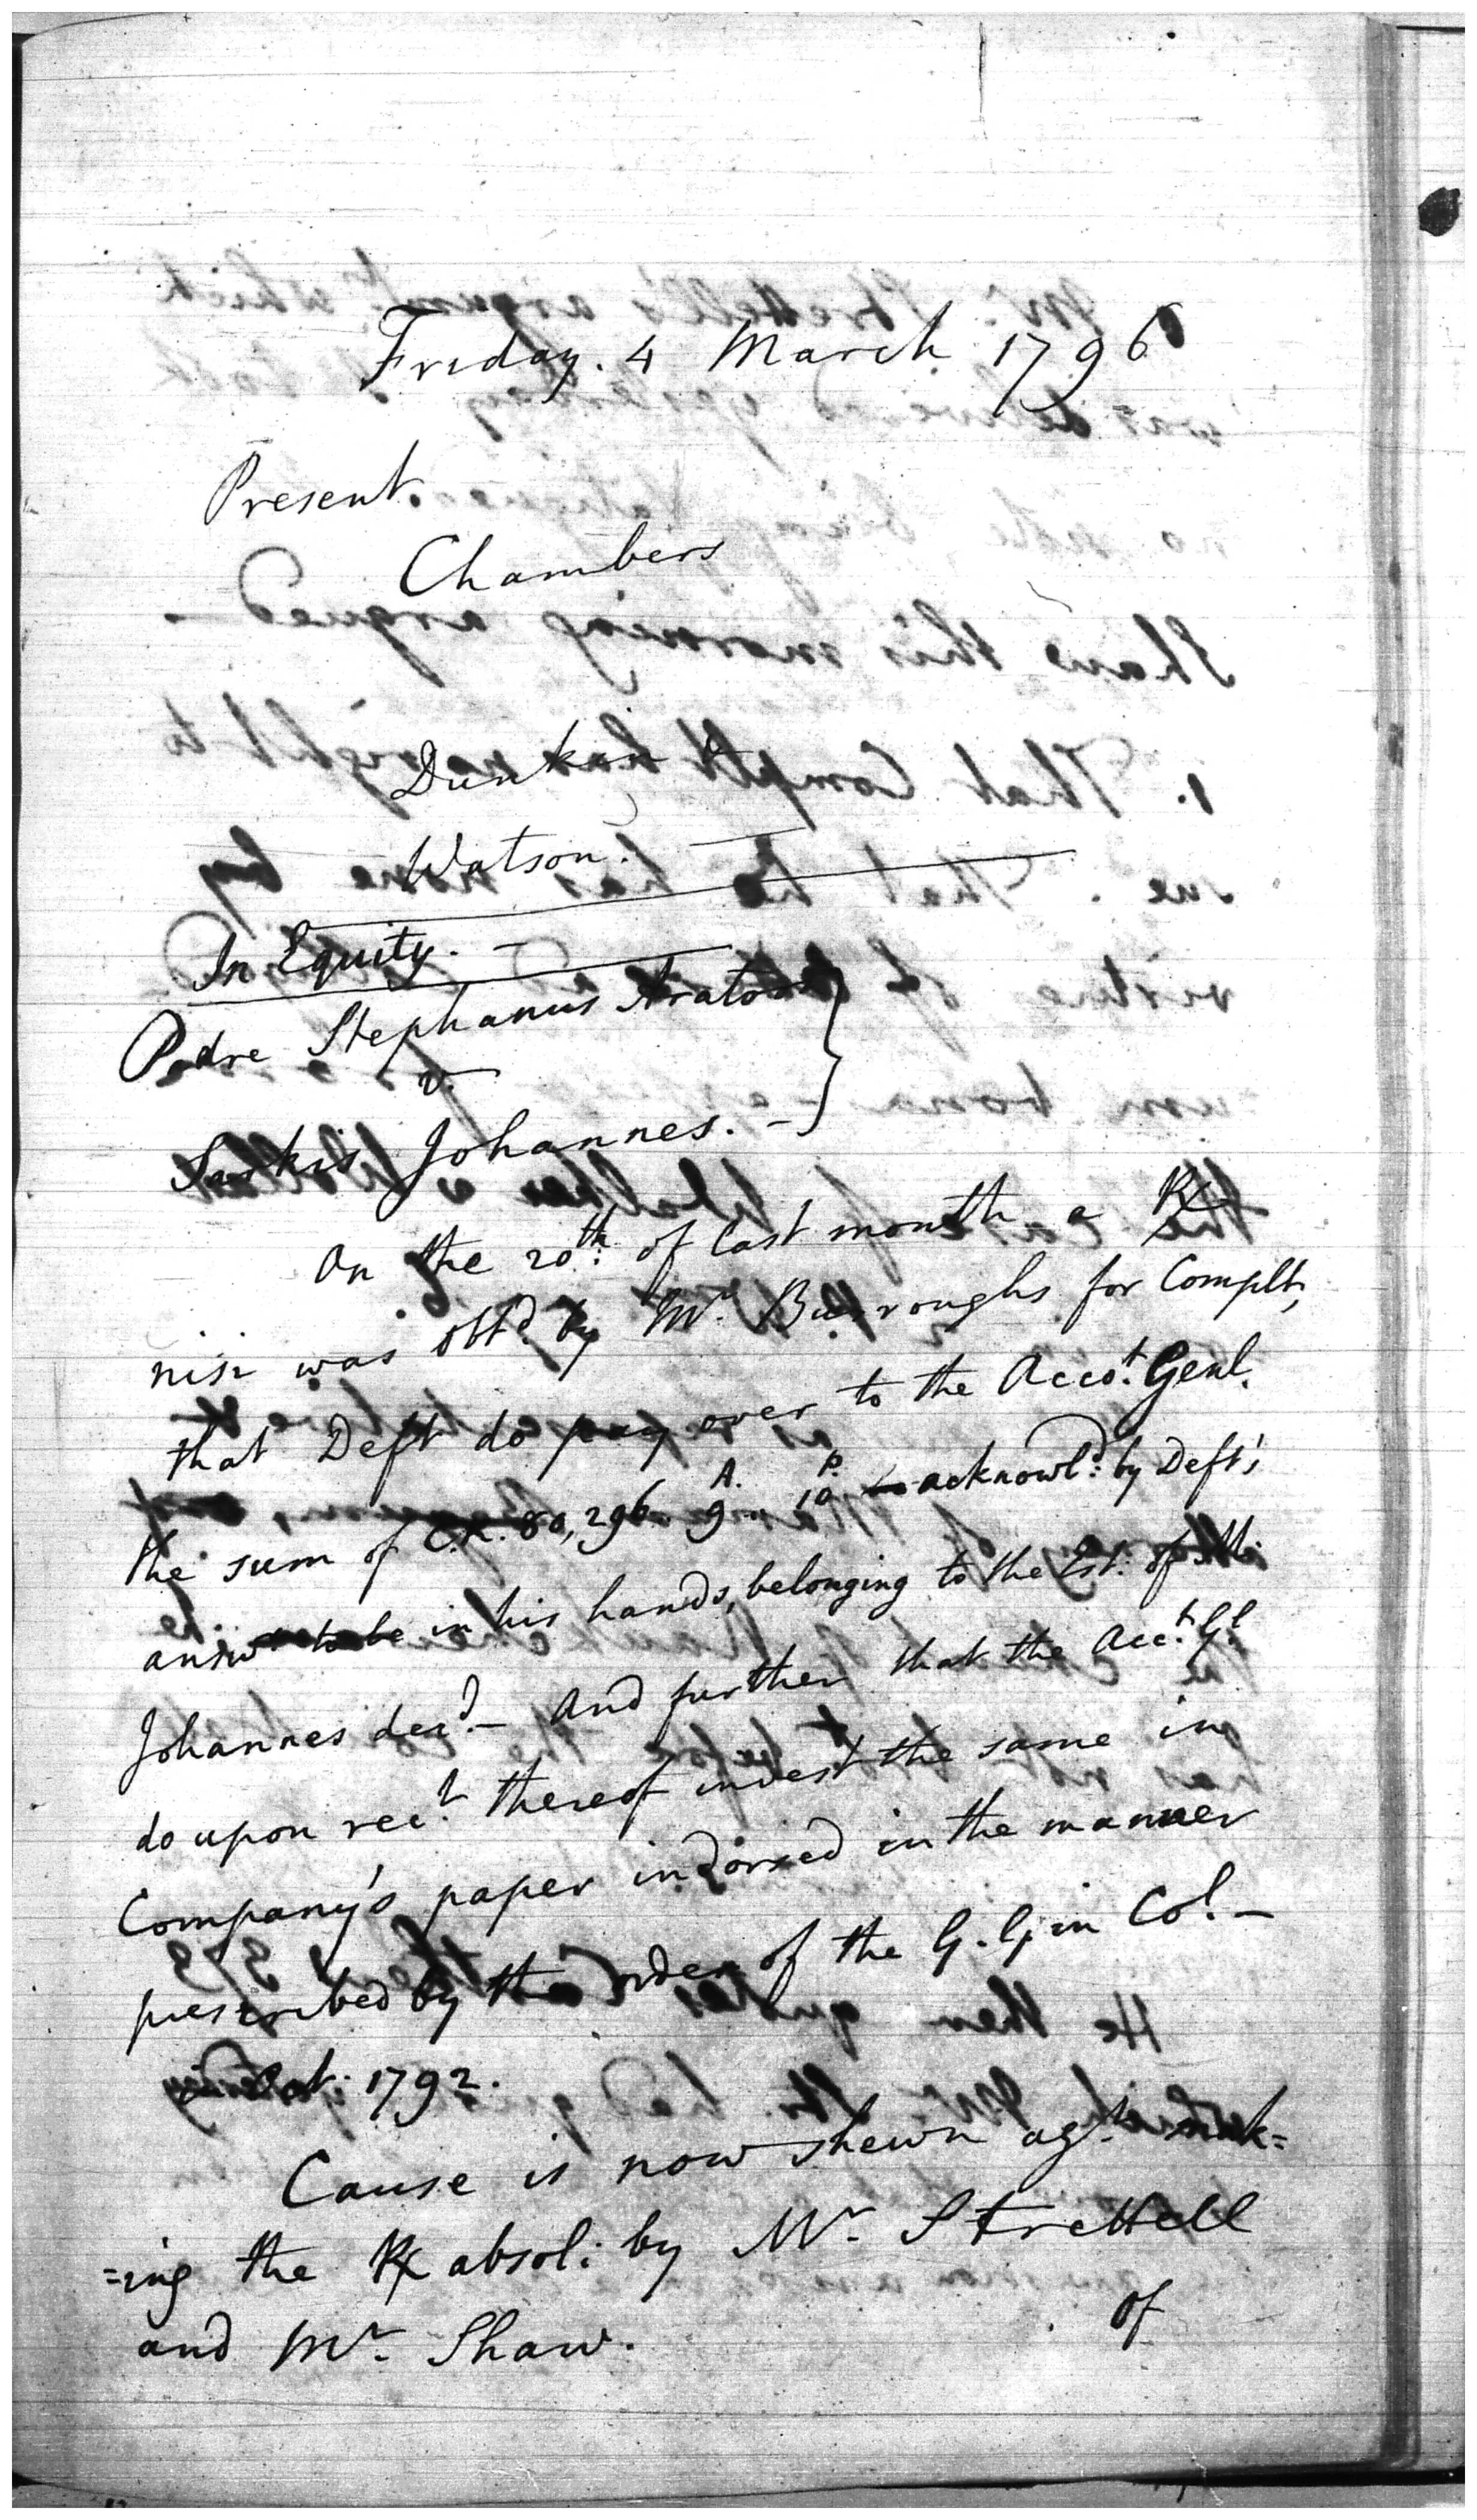 Friday. 4 March 1796
Present.
Chambers
Dunkin &
Watson. —
In Equity. —
Padre Stephanus Aratoon
v.
Sarkis Johannes. —
On the 20th: of last month a Rx
nisi was obtd. by Mr. Burroughs for Complt,
that Deft do pay over to the Acco.t Genl.
the sum of C.R. 80,296. 9 A. 10 P. acknowld: by Deft's
answ in his hands, belonging to the Est: of
Johannes decd. — And further that the Acc.t Gl
do upon rect. thereof invest the same in
Company's paper indorsed in the manner
prescribed by the order of the G. G. in Col. —
Oct: 1792.
Cause is now shewn agt. mak=
=ing the Rx absol: by Mr. Strettell
and Mr. Shaw.
of